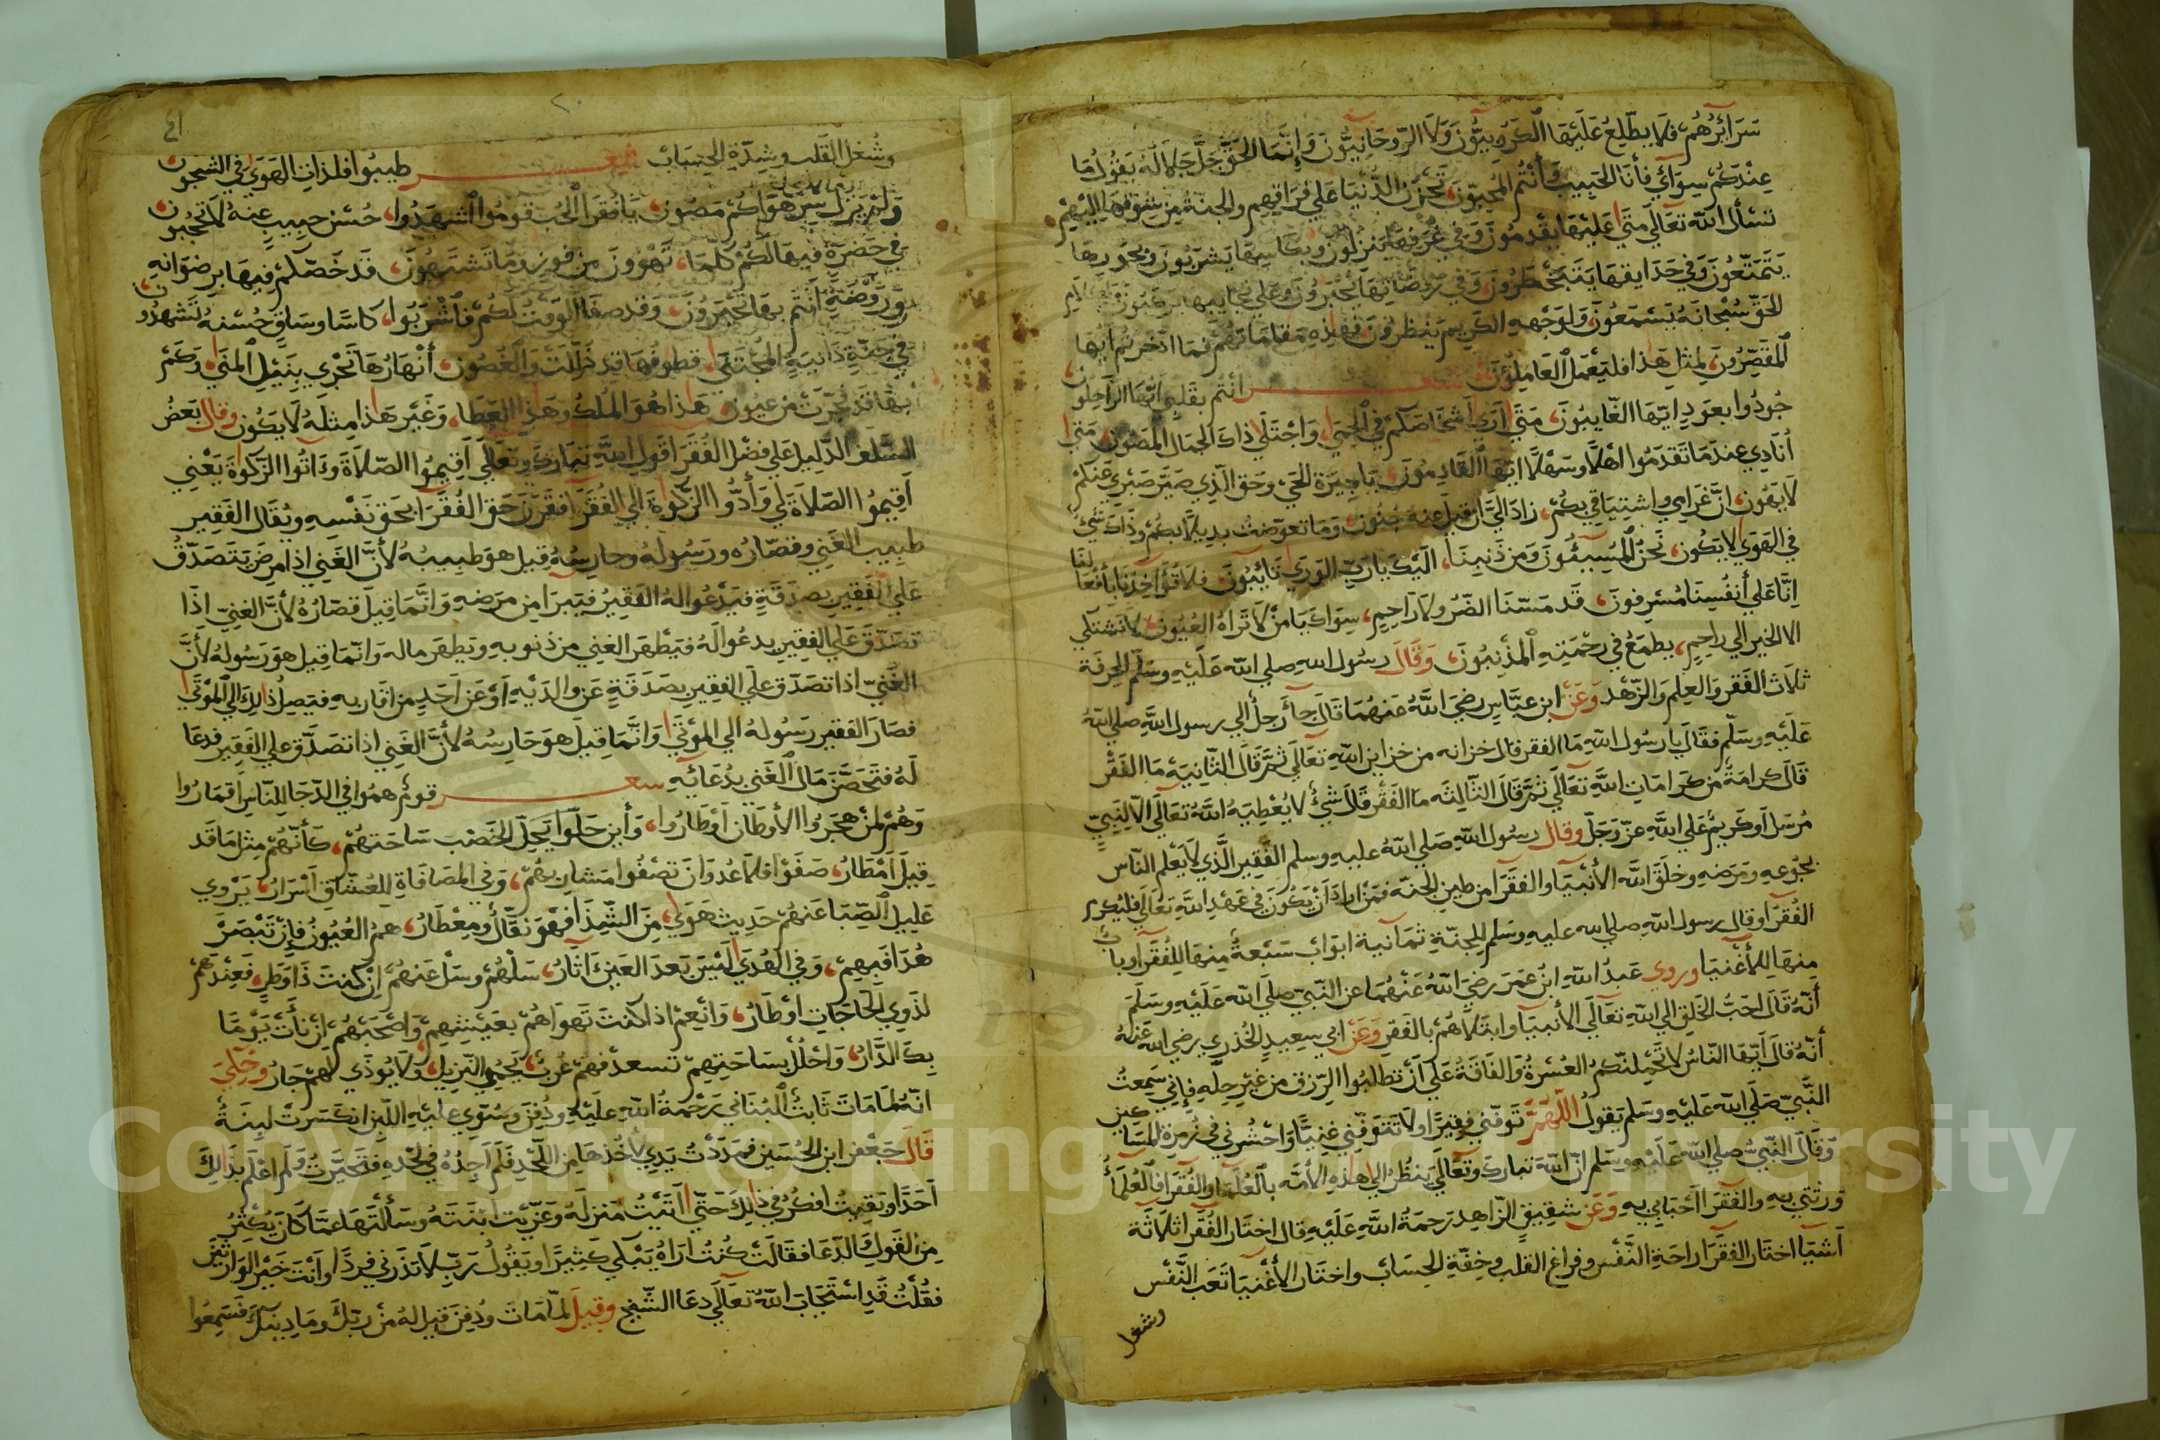 سَرَائِرُهُم، فلا يطّلِعُ عَلَيْهَا الكَرُوبِيُّونَ وَلا الرّوحَانِيُّونَ وَإِنَّمَا الحَقُّ جَلَّ جَلالُهُ يَقُولُ مَا
عِنْدَكُمْ سِوَائي فأنَا الحَبِيبُ وَأنتُم المُحِبّونَ، تَحْزَنُ الدُّنيَا عَلى فِرَاقِهِم والجنةُ مِن شوقهَا إليهِمْ
تسْألُ اللّهَ تعَالَى مَتَى عَلَيْهَا يقْدمُونَ وَفي غُرَفِهَا ينزِلُونَ وبكاسِهَا يَشرَبُونَ وبحُورِهَا
يَتمَتّعُونَ وَفي حَدَايِقِهَا يَتَبَخْطَرُونَ، وَفي رَوضَاتِهَا يُحْبَرُونَ وعَلى نجايبها يركبُونَ
الحَقّ سُبْحَانَهُ يَسْمَعُونَ وَلِوَجْهِهِ الكَرِيمِ يَنظرُونَ، فَهَذِهِ مَقامَاتهُم فمَا ادّخَرتُم أيّها
المُقَصِّرُونَ، لِمثلِ هَذا فَليَعْمَل العَامِلُونَ شعر أنتُم بِقَلبِي أيّهَا الرّاحِلُون
جُودُوا بعَودٍ ايّهَا الغَايبُونَ، مَتَى أرَى أشخَاصَكُم في الحِمَى، وَاجْتَلي ذاكَ الجمَال المَصُون، مَتى
أنَادِي عِندَ مَا تقدَمُوا أهْلاً وَسَهْلاً ايّهَا القَادِمُونَ، يا جِيرَة الحَي وحَق الّذِي صَيّرَ صَبْري عَنكُمْ
لا يَهُون، انّ غَرَامِي واشتِيَاقي بكُمْ، زادَ إلَى أن قِيلَ عنهُ جنُون، وَمَا تعوّضتُ بديلاً بكُم وذَاك شَيْ
في الهَوَى لا يَكُون، نَحْنُ المُسِيئُونَ وَمِن ذَنبِنَا، اليْكَ يَا رَبّ الوَرَى تَايِبُون، فلا تُؤاخِذنَا بأفعَالِنَا
إنّا عَلى أنفُسِنَا مُسْرِفون، قَد مَسّنَا الضّرُ ولا رَاحِم، سِوَاكَ يَا مَنْ لا تَرَاهُ العُيُون، لا نَشتَكي
الا لخير إلى رَاحِم، يطمَعُ في رحْمَتِهِ المُذْنِبُونَ، وَقَالَ رسُول اللهِ صلى اللّه عَلَيْهِ وسَلّم الحِرفة
ثلاَث الفَقر وَالعِلم وَالزّهْد وَعَنْ ابن عبّاسٍ رضيَ اللَّهُ عَنهُمَا قَالَ جَآءَ رَجلٌ إلى رسول اللَّهِ صلى اللّهُ
عَلَيْهِ وسَلّم فقَالَ يا رسُول اللّهِ مَا الفقر قال خزانه من خزاين اللّهِ تعَالَى ثمَّ قَالَ الثّانِيَة مَا الفَقْر
قَالَ كرامَةٌ مِن كَرَامَاتِ اللَّهِ تعَالَى ثمّ قَالَ الثّالِثَه مَا الفَقْر قَالَ شَيْءٌ لا يُعْطِيَهُ اللَّهُ تعَالَى إلا لِنَبيٍّ
مُرسَل أو كَرِيمٌ عَلى اللَّهِ عزّ وَجَلّ وقال رسُول اللّهِ صَلى اللّهُ عليهِ وسلم الفَقِير الَّذِي لا يَعْلم النّاس
بجُوعِهِ ومَرَضِهِ وخَلَقَ اللَّه الأنْبيَآ والفقرَآ مِن طِينِ الجنّه فمَنْ ارَادَ أنْ يَكُونَ في عَهْدِ اللَّهِ تَعَالى فليُكرِم
الفُقرَآ وقال رسول اللّهِ صلى الله عليهِ وَسَلم لِلجنّةِ ثمَآنية ابوَابٌ سَبْعةٌ مِنهَا لِلفُقرَآ وبابٌ
مِنهَا لِلأغنِيَا وروي عَبدُ اللّه ابنُ عمَرَ رضيَ اللّهُ عَنهُمَا عن النّبيّ صلى اللّه عَلَيْهِ وسَلَّمَ
أنّهُ قَالَ احَبُّ الخَلقِ إلى اللّهِ تعَالَى الأنبيَآ وابتَلاَهُمْ بالفَقرِ وَعَنْ ابي سعِيدٍ الخُدْرِي رضي اللّه عَنهُ
أنّهُ قالَ أيّهَا النّاسُ لا تحْمِلنّكُم العُسْرةُ وَالفَاقَةُ عَلَى أنْ تطلبُوا الرّزق من غيْرِ حِلّه فإني سَمِعتُ
النَّبيّ صَلّى اللّه عَليْهِ وسَلم يَقولُ اللَّهُمَّ تَوَفّني فقِيرًا وَلاَ تَتَوفّنِي غَنِيًّا وَاحْشُرنِي في زُمرةِ المسَاكين
وَقَالَ النّبيُّ صلى اللّه عَلَيْهِ وسَلم إنّ اللّهَ تبارَكَ وتعَالَى يَنظُرُ إلى هذِهِ الأمّه بالعُلَمَآ والفُقَرَآ فَالعُلمَآءُ
وَرثتي بهِ والفُقرَآ احْبَابي بهِ وَعَن شقِيقٍ الزّاهِد رَحمَةُ اللَّه عَلَيْهِ قال اختَار الفُقرَآ ثلاَثَة
أشيَا اختَار الفقرَا راحَة النّفْس وفرَاغ القلب وخِفّة الحِسَاب واختَار الأغنيَا تَعَب النَّفْس
وشغل
٤١
٢٠
وشُغل القَلب وشِدّة الحِسَاب شعر طِيبُوا فلذات الهَوَى في الشجُون
وَلَمْ يزَل سِرّ هَوَاكُم مَصُون، يَا فُقَرَا الحُب قومُوا اشهَدُوا، حُسْن حبيبٍ عنهُ لا تحجُبُون
في حَضرَةٍ فيهَا لكُم كلمَا، تهْوُونَ مِن فوزٍ وَمَا تَشتَهُون، قَد خَصّكُم فيهَا برِضوَانِهِ
ورَوْضَةٍ أنتُم بهَا تُحْبَرُون، وقد صفَا الوَقتُ لكُم فاشْرَبُوا، كاسًا وسَاقٍ حُسْنهُ تَشهَدُون
في جَنّةٍ دَانيَةِ المجتنى، قطوفُهَا قد ذُلّلَت وَالغُصُون، أنْهَارُهَا تَجْرِي بِنَيْلِ المنَى، وَكَمْ
بِهَا قَد فُجّرَتْ مِن عيُون، هَذا هُوَ المُلكُ وهَذا العَطَا، وَغَيْر هَذا مِثلهُ لا يَكُون وقال بَعضُ
السّلَف الدّلِيل عَلى فضْل الفُقرَا قولُ اللَّهِ تبَارَك وتَعَالَى أقِيمُوا الصّلاَةَ وَءاتُوا الزّكوةَ يَعْنِي
أقِيمُوا الصّلاَةَ لي وَأدّوا الزكوةَ إلى الفُقرَآ فقَرَنَ حَق الفُقَرَا بحَق نَفْسِهِ ويُقَال الفَقِير
طبِيب الغَني وقصّارُه ورَسُولُهُ وحَارسُهُ قيل هوَ طبيبهُ لأنَّ الغَني إذا مَرضَ يَتصَدّقُ
عَلَى الفَقِير بصَدقَةٍ فيَدْعُوا لهُ الفَقيرُ فيَبرَا مِن مرَضهِ وَإنّمَا قِيلَ قصّارُهُ لأنّ الغنِيّ إذَا
تصَدّقَ عَلى الفقِير يدعُوا لَهُ فيَطْهر الغَني مِن ذنوبهِ ويَطهر ماله وَإنّمَا قِيل هوَ رَسُولهُ لأنَّ
الغَنيّ اذا تصَدّق عَلى الفقِير بِصَدَقَةٍ عَن وَالدَيْهِ أوْ عَن أحَدٍ مِن أقَاربهِ فيَصِلُ ذلِكَ إلى المَوْتَى
فصَار الفَقير رَسُولهُ إلى المَوْتَى وَإنَّمَا قِيلَ هوَ حَارسُهُ لأنَّ الغَني اذا تصَدّقَ عَلى الفَقِير فدعَا
لَهُ فتَحَصَّنَ مَال الغَني بِدُعَائهِ شعر قَومٌ همُوا في الدّجَا للِنّاسِ أقمَارُ وا
وَهُمْ لمَنْ هجَرُوا الأوطَان أوْطَارُ وا، وَأين حَلّوا يَحِلّ الخَصْب سَاحَتهُمْ، كَأنّهُمْ مِثلمَا قَد
قِيلَ أمْطَارُ، صَفَوْا فلا عُدوانَ تصفُوا مَشارِبهُمْ، وَفي المصَافاةِ لِلعُشّاق أسْرَارُ، يَرْوي
عَلِيل الصّبَا عَنهُمْ حَدِيث هَوًى، مِنَ الشّذَا فهْوَ نقَّالٌ ومِعْطَارُ، همُ العُيُون فإنْ تَبْصَرْ
هُدَا فَبِهِمْ، وَفي الهُدَى لَيْسَ بَعدَ العَين آثَارُ، سَلْهُمْ وسَلْ عَنهُمْ إنْ كنتَ ذَا وَطرٍ، فَعِندَهُمْ
لذَوِي الحَاجَاتِ أوْطَارُ، وَانعِمْ إذا كنتَ تَهوَاهُمْ بعَيْشِهِمْ، وَاصْحَبهُمْ إنْ نأَتْ يَوْمًا
بِكَ الدّارُ، وَاحْلُل بسَاحَتِهِمْ تسعد فهُمْ عُربٌ، يُحْمَى النّزيل، وَلا يُوذَى لَهُم جَارُ وحُكِيَ
انّهُ لمَا مَاتَ ثَابتُ البُنَاني رَحمَةُ اللّه عليْهِ ودُفِنَ وسُوّي عليْهِ اللّبن انكَسَرتْ لَبِنَةٌ
قَالَ جَعْفر ابن الحُسَين فمَدَدْتُ يَدِي لأخُذهَا مِن اللّحْد فَلَم أجِدْهُ في لَحْدِهِ فتَحَيَّرتُ وَلَم اعْلِم بذالِك
أحَدًا وبَقِيتُ أفكرُ في ذلِكَ حَتّى أتَيْتُ مَنزلَهُ وعَزّيت ابْنَتَهُ وسَألتهَا عمّا كَانَ يُكثِرُ
مِن القَول وَالدّعَا فقَالَتْ كُنتُ أرَاهُ يَبْكي كَثِيرًا وَيَقُولُ رَبّ لا تذَرني فرْدًا وَأنتَ خَيْر الوَارثين
فقُلْتُ قَد استَجَابَ اللّهُ تعَالَى دعَا الشّيخ وقيلَ لمّا مَاتَ ودُفِنَ قيل لهُ مَنْ رَبّكَ ومَا دِينكَ فسَمِعُوا
Copyright © King University